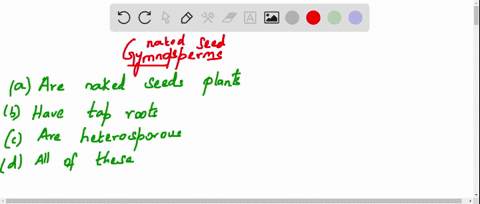 naked seed
Gymnosperms
(a) Are naked seeds plants
(b) Have tap roots
(c) Are heterosporous
(d) All of these